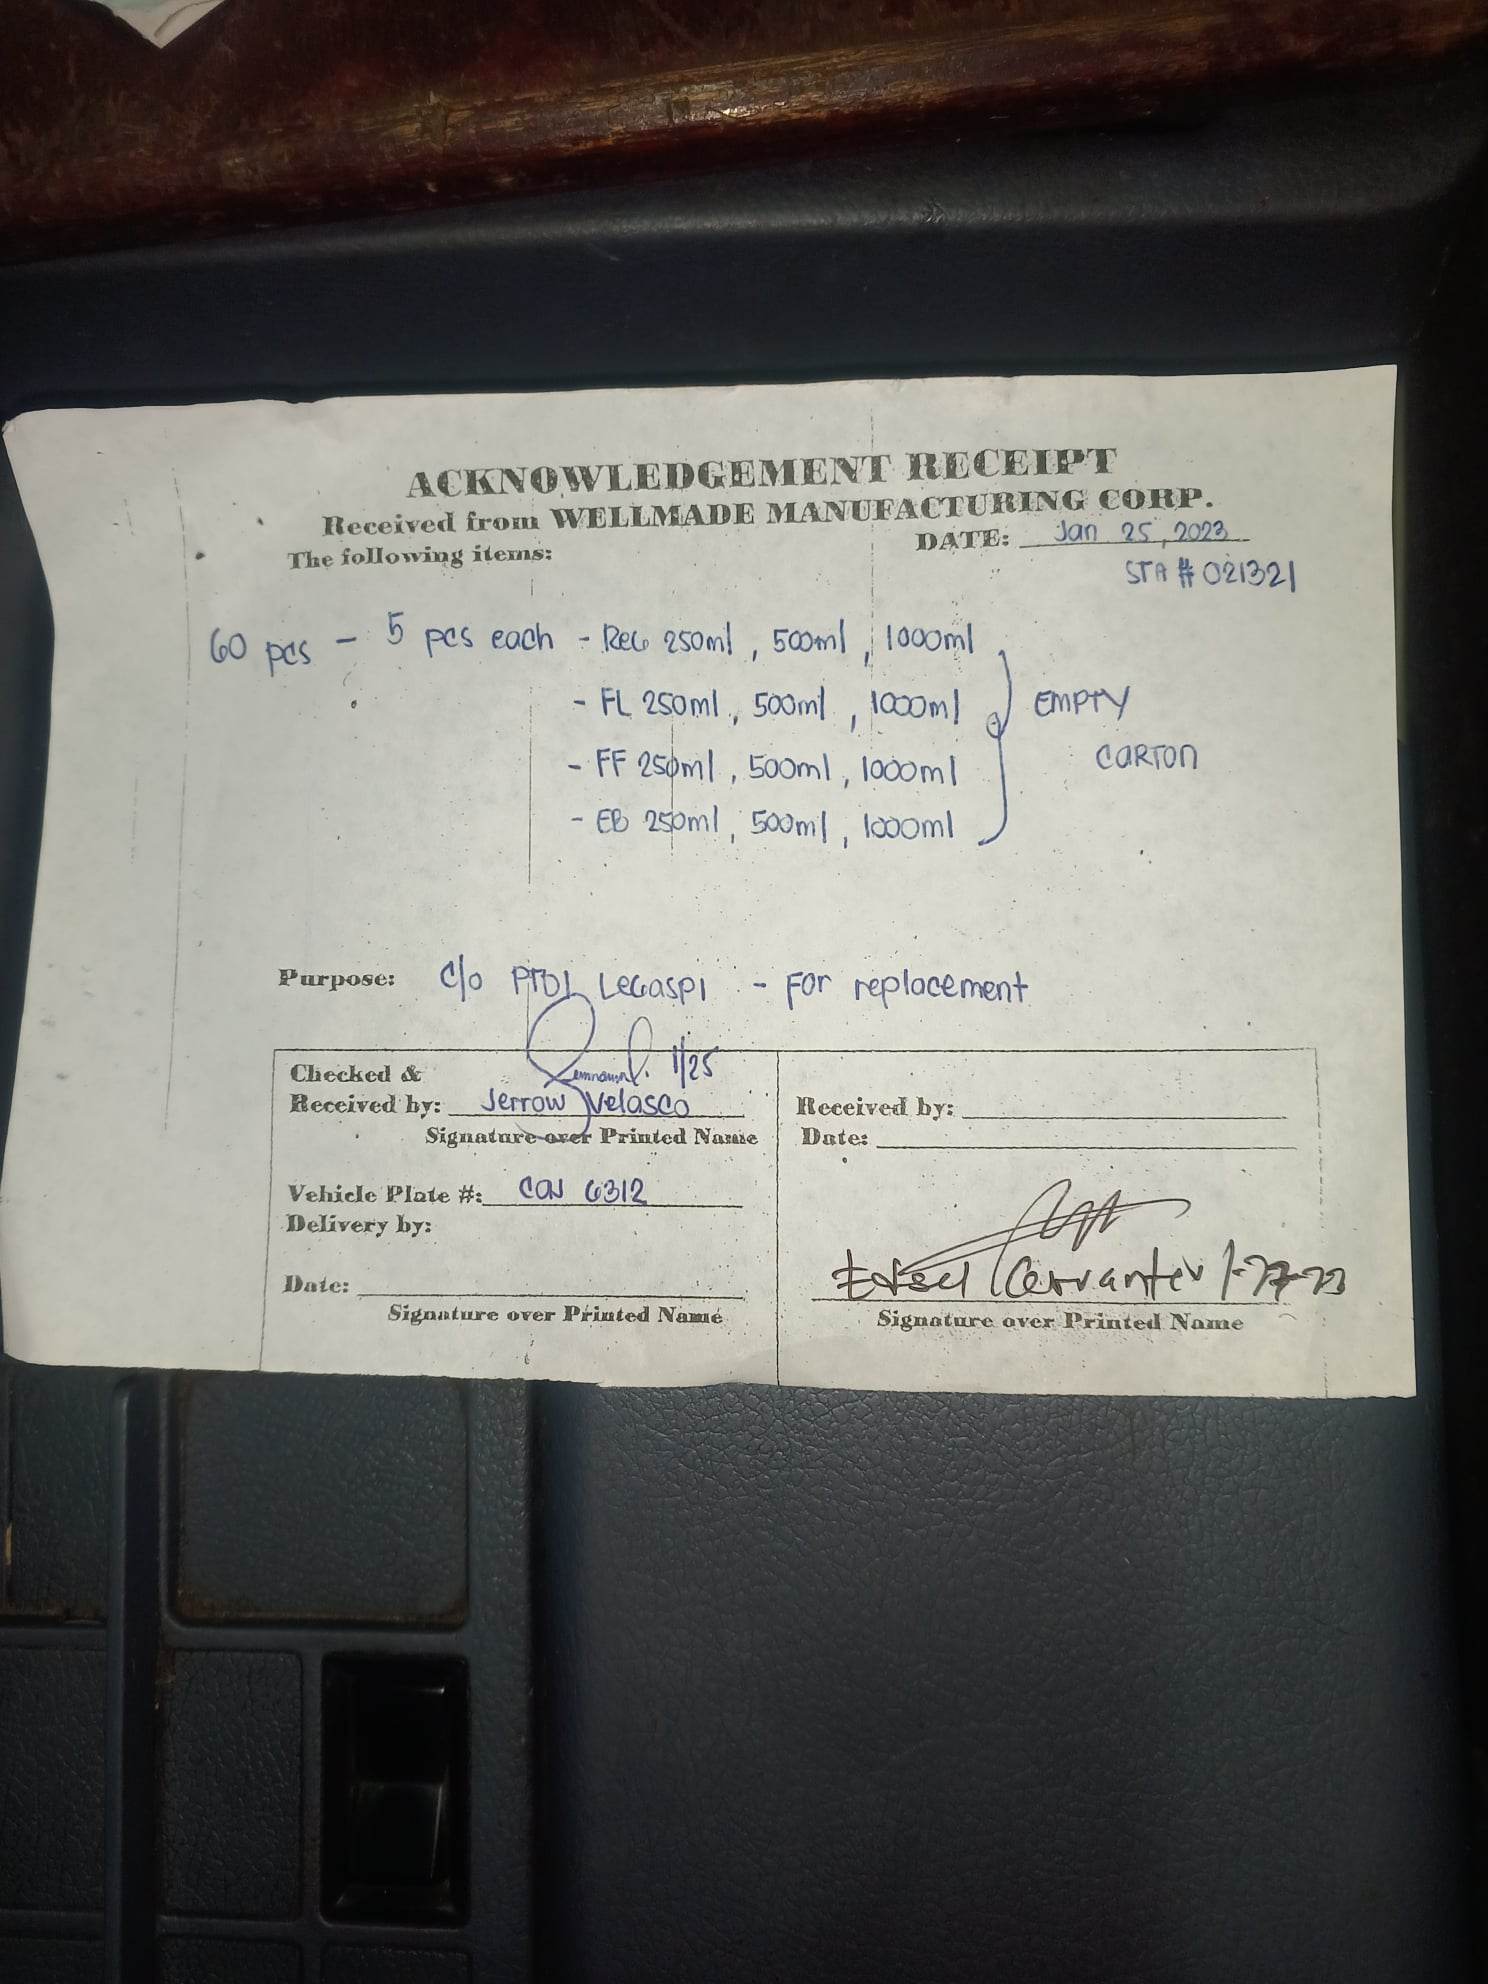 ACKNOWLEDGEMENT RECEIPT
Received from WELLMADE MANUFACTURING CORP.
The following items:
DATE: Jan 25, 2023
STA # 021321
60 pcs - 5 pcs each - REG 250ml, 500ml, 1000ml
- FL 250ml, 500ml, 1000ml
EMPTY
- FF 250ml, 500ml, 1000ml
CARTON
- EB 250ml, 500ml, 1000ml
Purpose: C/o PTDL LEGASPI - For replacement
1/25
Checked &
Received by: Jerrow Velasco
Signature over Printed Name
Vehicle Plate #: CON 6312
Delivery by:
Date:
Signature over Printed Name
Received by:
Date:
Cervantes
Signature over Printed Name